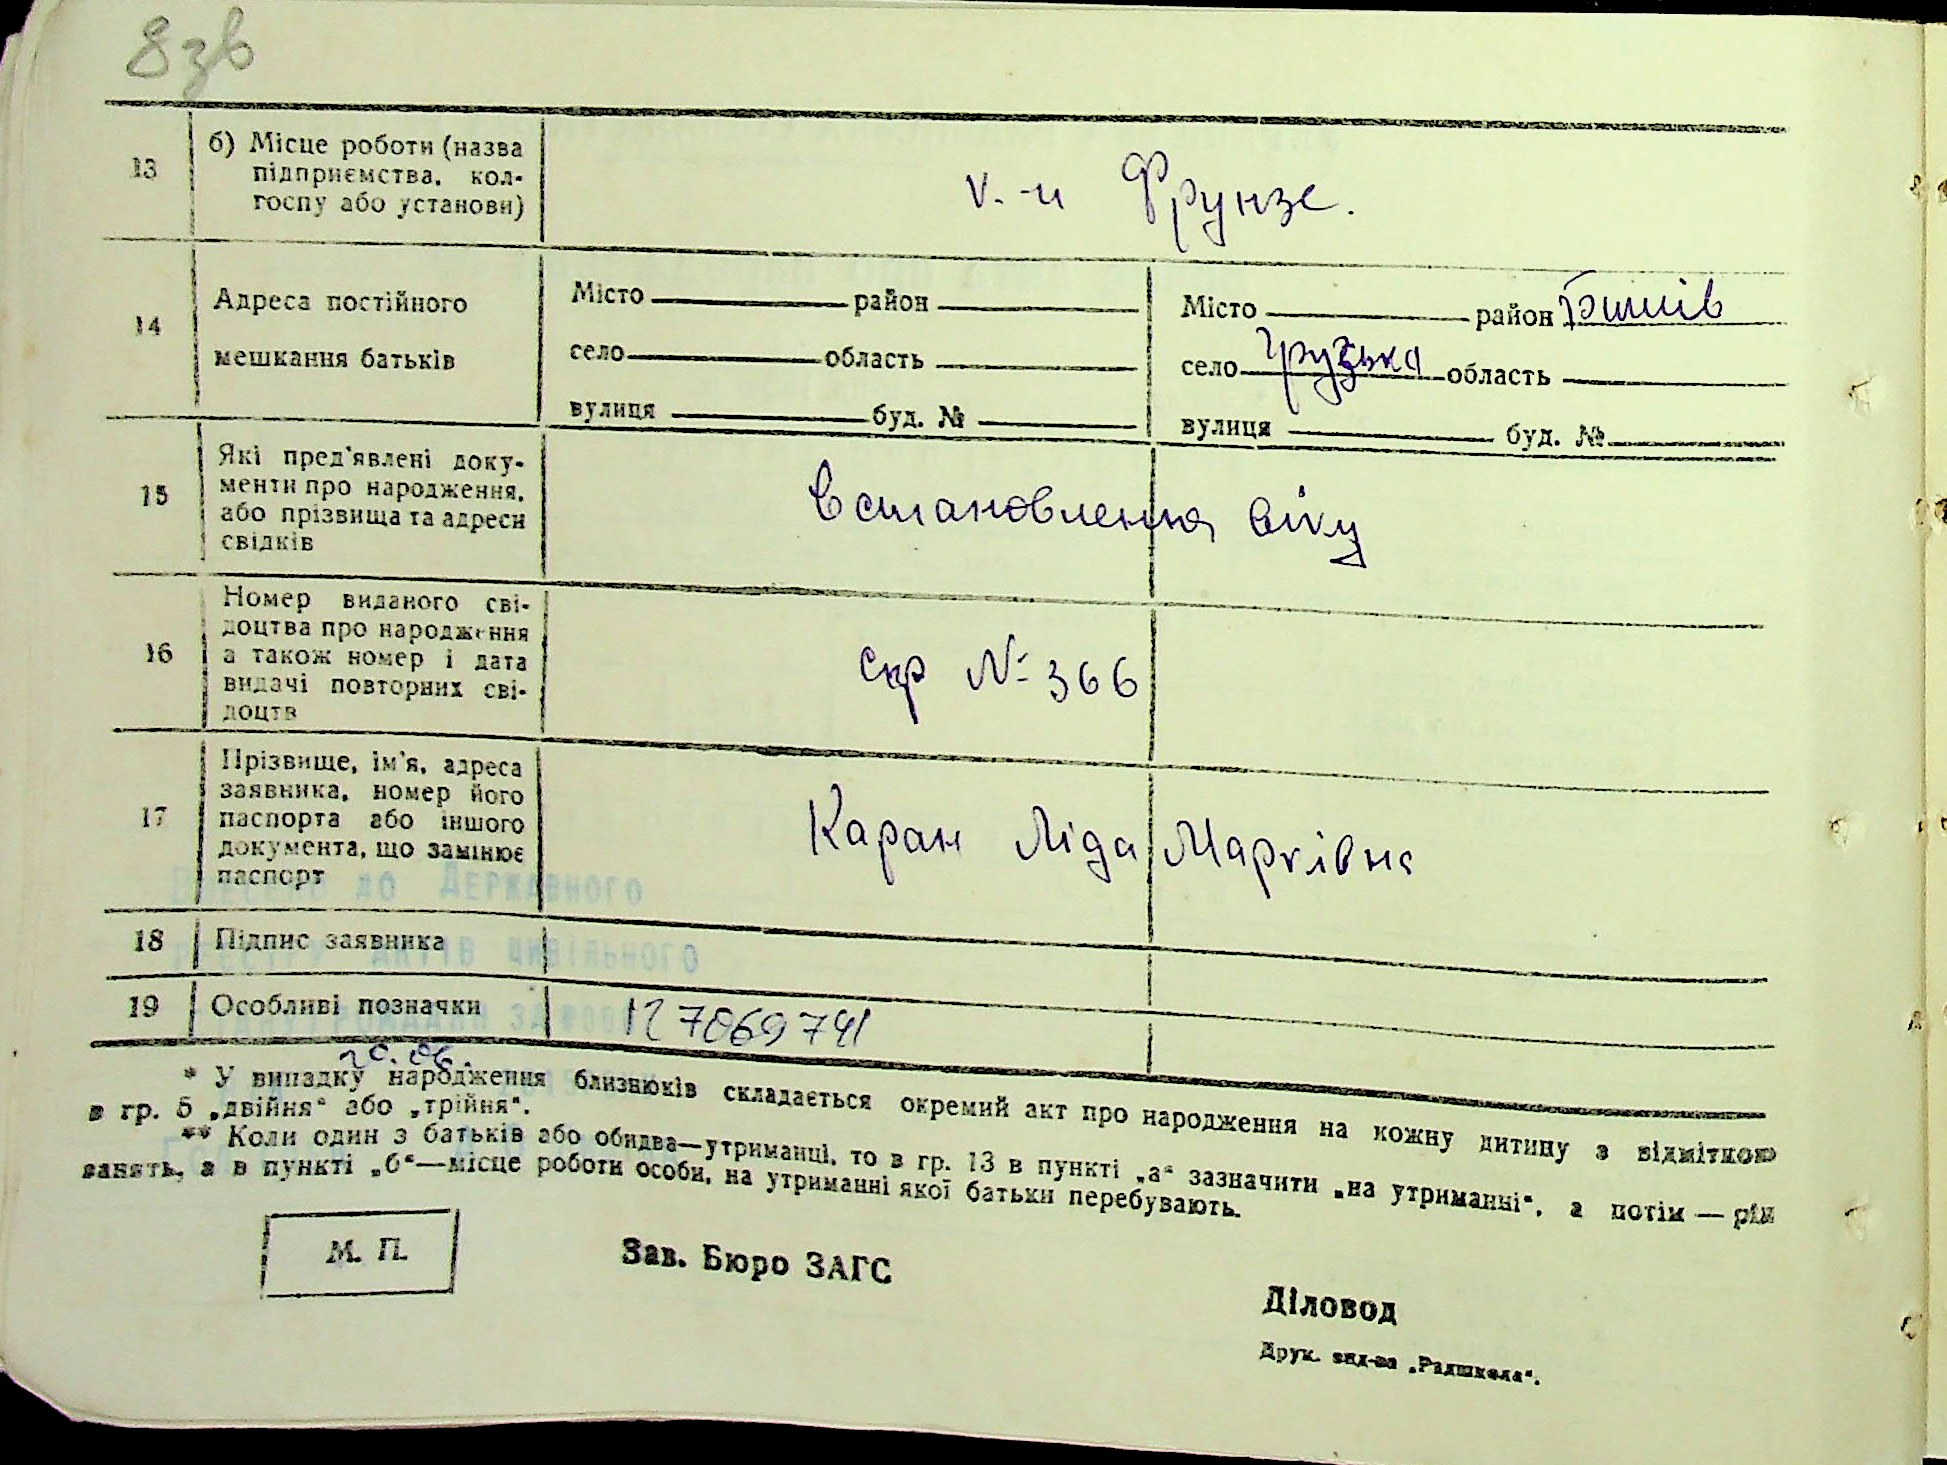 8зв
13
б) Місце роботи (назва
підприємства, кол-
госпу або установи)
Фрунзе.
14
Адреса постійного
мешкання батьків
Місто район
село область
вулиця буд. №
Місто район
село Грузька область
вулиця буд. №
15
Які пред'явлені доку-
менти про народження,
або прізвища та адреси
свідків
Встановлення віку
16
Номер виданого сві-
доцтва про народження
а також номер і дата
видачі повторних сві-
доцтв
спр № 366
17
Прізвище, ім'я, адреса
заявника, номер його
паспорта або іншого
документа, що замінює
паспорт
Каран Ліда Марківна
до Державного
18
Підпис заявника
актів цивільного
19
Особливі позначки
* У випадку народження близнюків складається окремий акт про народження на кожну дитину з відміткою
в гр. 5 „двійня“ або „трійня“.
** Коли один з батьків або обидва—утриманці, то в гр. 13 в пункті „а“ зазначити „на утриманні“, а потім — рід
занять, а в пункті „б“—місце роботи особи, на утриманні якої батьки перебувають.
М. П.
Зав. Бюро ЗАГС
Діловод
Друк. вид-ва „Радшкола“.